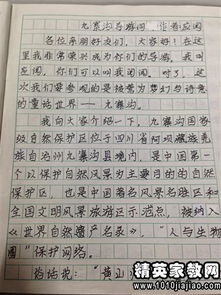 九寨沟导游词
各位亲朋好友们,大家好!在这
里我非常荣兴成为你们的导游,我叫
应闻,你们可以叫我闻闻。对了,这
次我们要参观的是披覆为梦幻与诗意
的童话世界——九寨沟。
我向大家介绍一下,九寨沟国家
级自然保护区位于四川省阿坝藏族羌
族自治州九寨沟县境内,是中国第一
个以保护自然风景为主要目的的自然
保护区,也是中国著名风景名胜区和
全国文明风景旅游区示范点,被纳入
《世界自然遗产名录》,“人与生物
圈”保护网络。
俗话说:“黄山
精英家教网
www.1010jiajiao.com